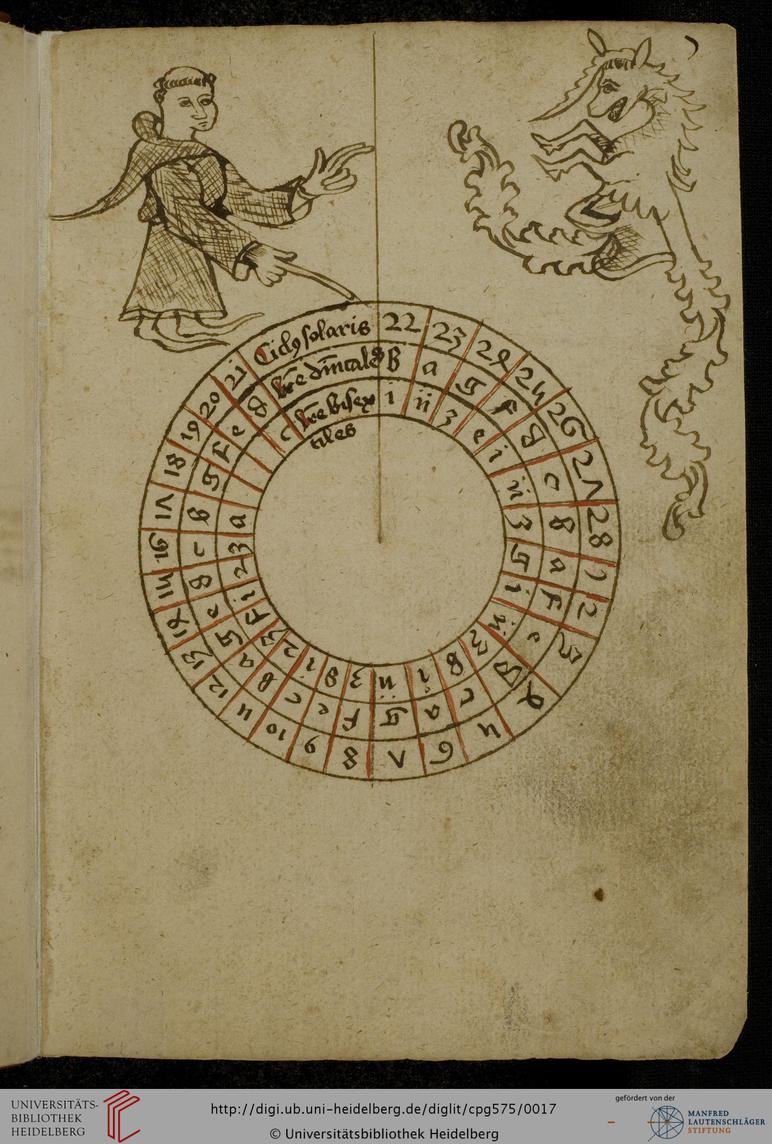 Cicl9 solaris 22 23 24 25 26 27 28 1 2 3 4 5 6 7 8 9 10 11 12 13 14 15 16 17 18 19 20 21
lr̄e dn̄icales b a g f d c b a f e d c a g f e c b a g e d c b g f e d
lr̄e bisex i ii 3 e i ii 3 g i ii 3 b i ii 3 d i 2 3 f i 2 3 a c
tiles
UNIVERSITÄTS-
BIBLIOTHEK
HEIDELBERG
http://digi.ub.uni-heidelberg.de/diglit/cpg575/0017
© Universitätsbibliothek Heidelberg
gefördert von der
MANFRED
LAUTENSCHLÄGER
STIFTUNG